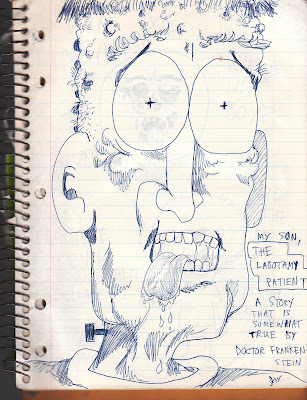 MY SON,
THE
LABOTAMY
PATIENT
A STORY
THAT IS
SOMEWHAT
TRUE BY
DOCTOR FRANKEN-
STEIN